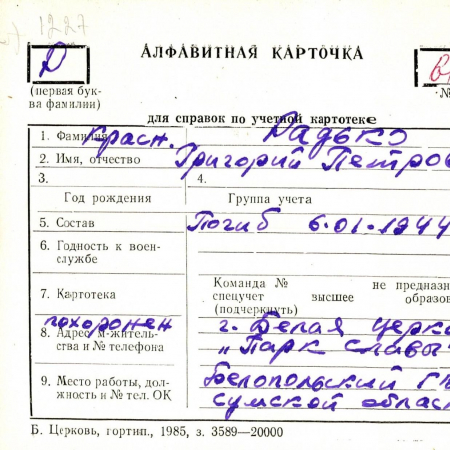 1227
Д
АЛФАВИТНАЯ КАРТОЧКА
(первая бук-
ва фамилии)
№
для справок по учетной картотеке
1. Фамилия Красн. Радько
2. Имя, отчество Григорий Петров
3. 4.
Год рождения Группа учета
5. Состав Погиб 6.01.1944
6. Годность к воен-
службе
Команда № не предназн
7. Картотека спецучет высшее образов
(подчеркнуть)
похоронен г. Белая Церко
8. Адрес м-житель-
ства и № телефона „Парк славы"
9. Место работы, дол-
жность и № тел. ОК Белопольский Г
Сумской облас
Б. Церковь, гортип., 1985, з. 3589—20000